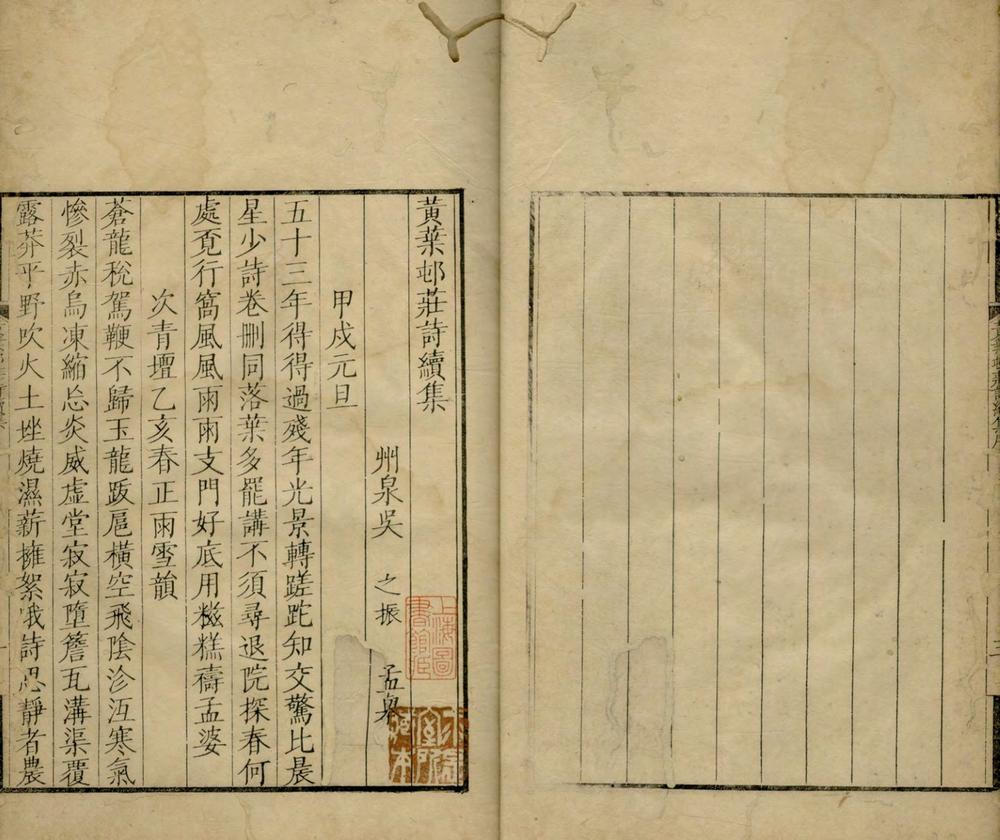 黃葉邨莊詩續集
州泉吳 之振 孟舉
甲戌元旦
五十三年得得過殘年光景轉蹉跎知交驚比晨
星少詩卷刪同落葉多罷講不須尋退院探春何
處覔行窩風風雨雨支門好底用糍糕禱孟婆
次青壇乙亥春正雨雪韻
蒼龍稅駕鞭不歸玉龍跋扈橫空飛陰沴沍寒氣
慘裂赤烏凍縮忩炎威虛堂寂寂墮簷瓦溝渠覆
露莽平野吹火土埣燒濕薪擁絮哦詩思靜者農
上海圖
書館藏